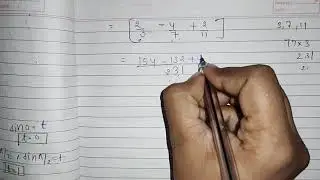 = [ 2/3 - 4/7 + 2/11 ]
= 154 - 132 +
231
2,7,11
77 x 3
231
sin0 = t
t=0
sin π/2 = t